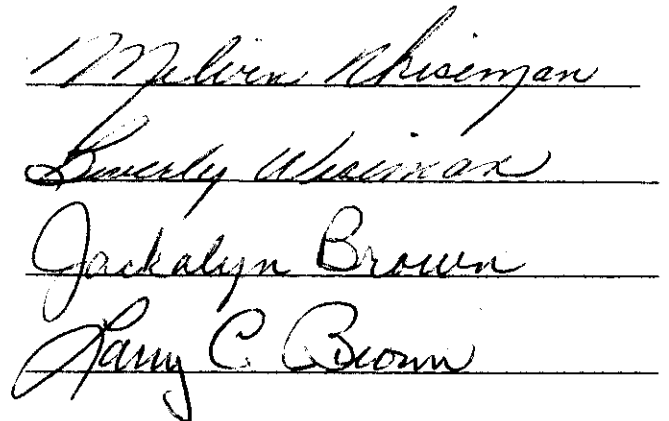 Melvin Whiseman
Beverly Wiseman
Jackalyn Brown
Larry C Brown